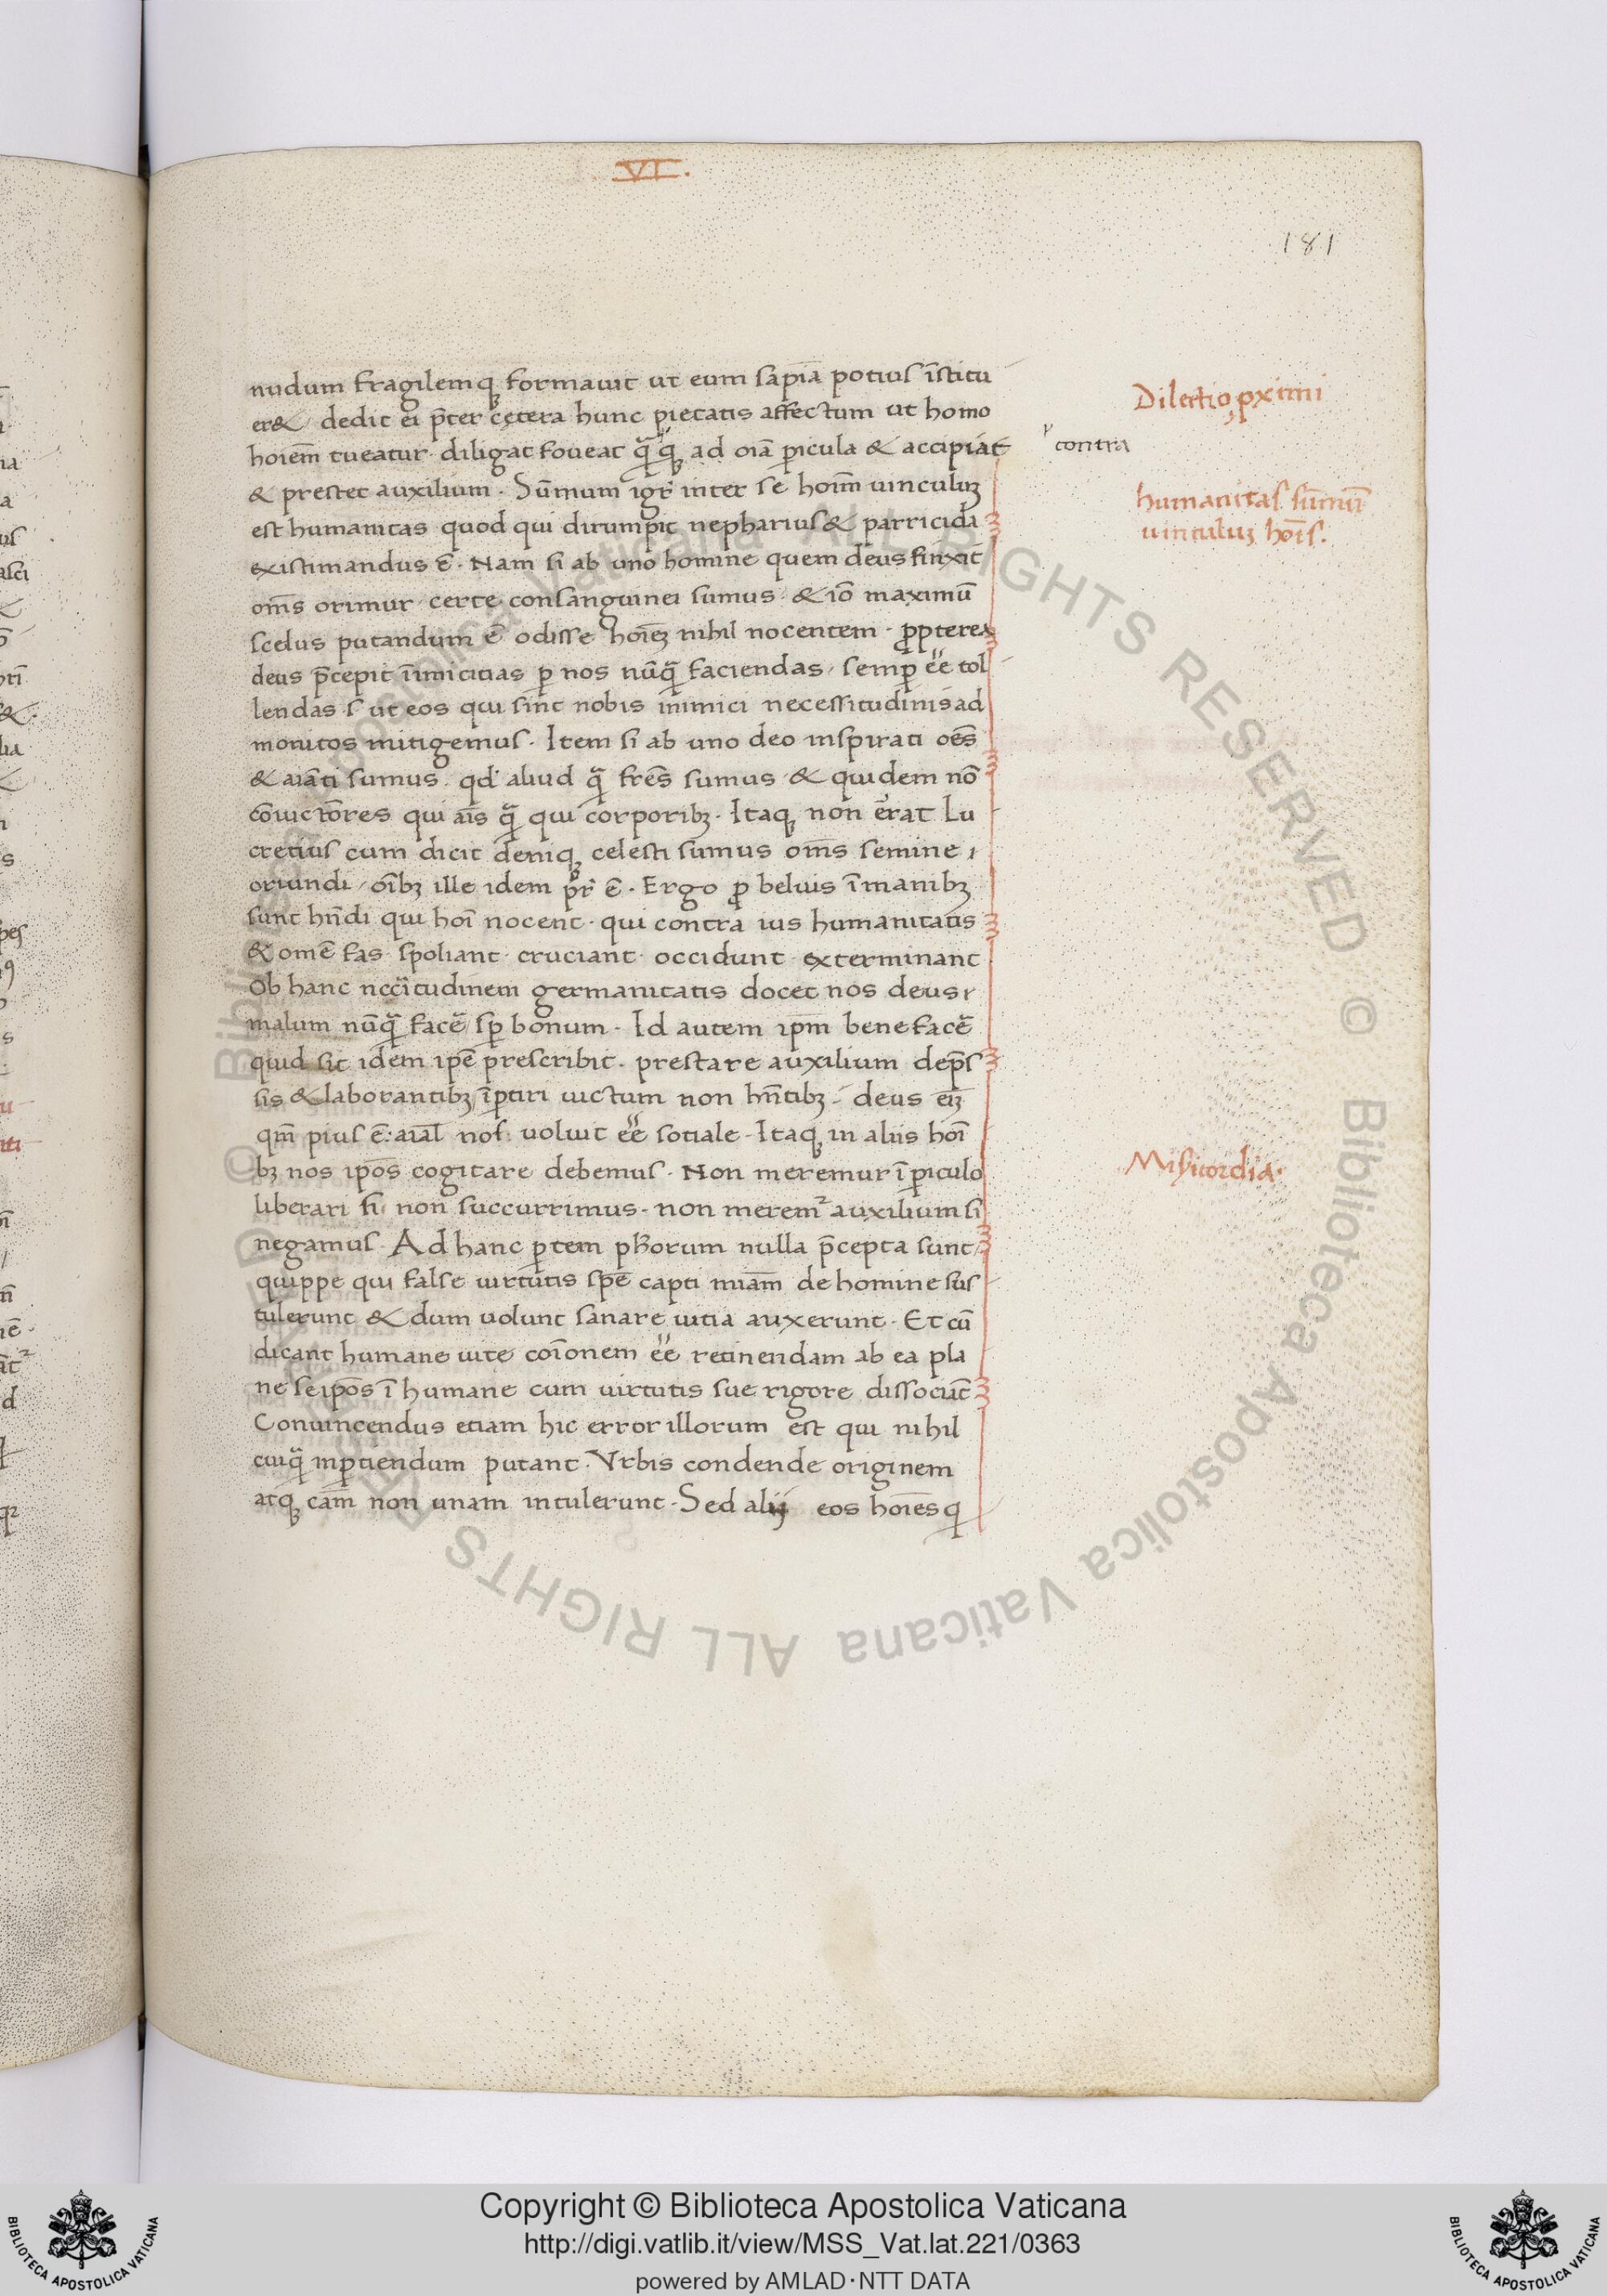 VI.
181
nudum fragilemq̨ formauit ut eum sapīa potius īstitu
er& dedit ei p̄ter cętera hunc pietatis affectum ut homo
hoiem̄ tueatur diligat foueat q̄ꝗ ad oīa ꝑicula & accipiat
& prestet auxilium. Sūmum igr̄ inter se hoīm uinculuꝫ
est humanitas quod qui dirumpit nepharius & parricida
existimandus ē. Nam si ab uno homine quem deus finxit
om̄s orimur certe consanguinei sumus & iō maximū
scelus putandum ē odisse hoīeꝫ nihil nocentem. ꝓpterea
deus p̄cepit īimicitias ꝑ nos nūq̄ faciendas, semꝑ eē tol
lendas s ut eos qui sint nobis inimici necessitudinis ad
monitos mitigemus. Item si ab uno deo inspirati oēs
& aiāti sumus. qd aliud q̄ fr̄es sumus & quidem nō
cōuictōres qui aīs q̄ qui corporibꝫ. Itaq̨ non errat Lu
cretius cum dicit deniq̨ celesti sumus om̄s semine,
oriundi, oībꝫ ille idem pr̄ ē. Ergo ꝓ beluis īmanibꝫ
sunt hn̄di qui hoī nocent. qui contra ius humanitatis
& omē fas spoliant cruciant occidunt exterminant
Ob hanc nec̄citudinem germanitatis docet nos deus,
malum nūq̄ facē sꝑ bonum. Id autem ipm̄ benefacē
quid sit idem ipē prescribit. prestare auxilium dep̄s
sis & laborantibꝫ īꝑtiri uictum non hn̄tibꝫ. deus eīꝫ
qm̄ pius ē: aīal nos uoluit eē sotiale. Itaq̨ in aliis hoī
bꝫ nos ipōs cogitare debemus. Non meremur ī ꝑiculo
liberari si non succurrimus. non merem² auxilium si
negamus. Ad hanc ꝑtem ph̄orum nulla p̄cepta sunt,
quippe qui false uirtutis spē capti mīam de homine sus
tulerunt & dum uolunt sanare uitia auxerunt. Et cū
dicant humane uite coīonem eē retinendam ab ea pla
ne seipōs ī humane cum uirtutis sue rigore dissociāt
Conuincendus etiam hic error illorum est qui nihil
cuiq̄ inꝑtiendum putant. Vrbis condende originem
atq̨ cām non unam intulerunt. Sed alij eos hoīes q
Dilectio ꝓximi
contra
humanitas sūmū
uinculuꝫ hoīs.
Misicordia.
Copyright © Biblioteca Apostolica Vaticana
http://digi.vatlib.it/view/MSS_Vat.lat.221/0363
powered by AMLAD·NTT DATA
BIBLIOTECA APOSTOLICA VATICANA
BIBLIOTECA APOSTOLICA VATICANA
© Biblioteca Apostolica Vaticana ALL RIGHTS RESERVED © Biblioteca Apostolica Vaticana ALL RIGHTS RESERVED